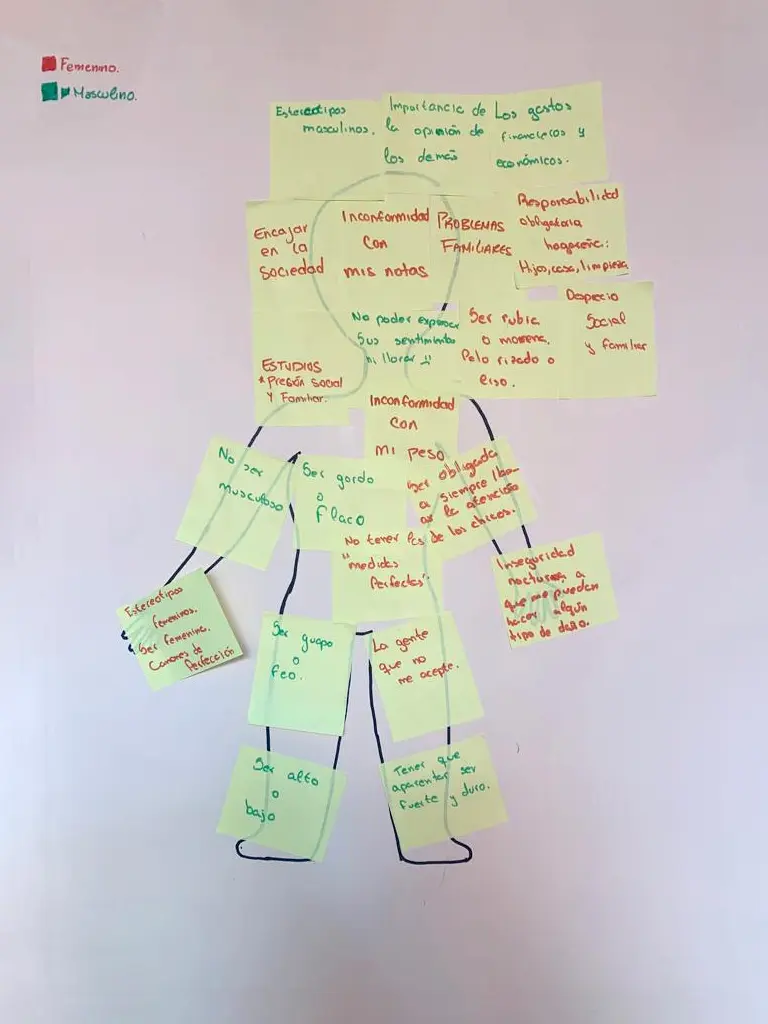 Femenino.
Masculino.
Estereotipos
masculinos.
Importancia de
la opinión de
los demás
Los gastos
financieros y
económicos.
Encajar
en la
sociedad
Inconformidad
con
mis notas
PROBLEMAS
FAMILIARES
Responsabilidad
obligatoria
hogareña:
Hijos, casa, limpieza
No poder expresar
sus sentimientos
ni llorar
Ser rubia
o morena.
Pelo rizado o
liso.
Desprecio
Social
y familiar
ESTUDIOS
* Presión social
y Familiar.
Inconformidad
con
mi peso
No ser
musculoso
Ser gordo
o
flaco
Ser obligada
a siempre lla-
mar la atención
de los chicos.
No tener las
"medidas
perfectas".
Inseguridad
nocturna, a
que me puedan
hacer algún
tipo de daño.
Estereotipos
femeninos.
Ser femenina.
Canones de
Perfección
Ser guapo
o
feo.
La gente
que no
me acepte.
Ser alto
o
bajo
Tener que
aparentar ser
fuerte y duro.